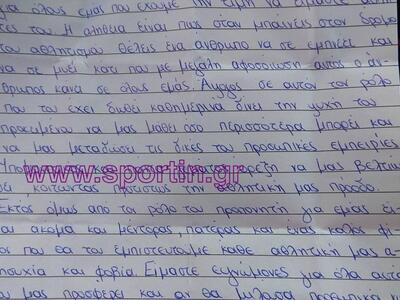 για όλους εμάς που έχουμε την τιμή να είμαστε
τές του. Η αλήθεια είναι πως όταν μπαίνεις στον δρόμο
του αθλητισμού θέλεις ένα άνθρωπο να σε εμπνέει και
να σε μυεί κάτι που με μεγάλη αφοσοίωση αυτός ο άν-
θρωπος κάνει σε όλους εμάς. Άψογος σε αυτόν τον ρόλο
που του έχει δωθεί καθημερινά δίνει την ψυχή του
προκειμένου να μας μάθει όσο περισσότερα μπορεί και
να μας μεταδώσει τις δικές του προσωπικές εμπειρίες
να μας βελτιώ
κοιτώντας την αθλητική μας πρόοδο.
Εκτός όμως από το ρόλο του προπονητή για εμάς εί
ναι ακόμα και μέντορας, πατέρας και ένας καλός φί-
λος που θα του εμπιστευτούμε κάθε αθλητική μας α-
νησυχία και φοβία. Είμαστε ευγνώμονες για όλα αυτά
που μας προσφέρει και αν θα
www.sportin.gr